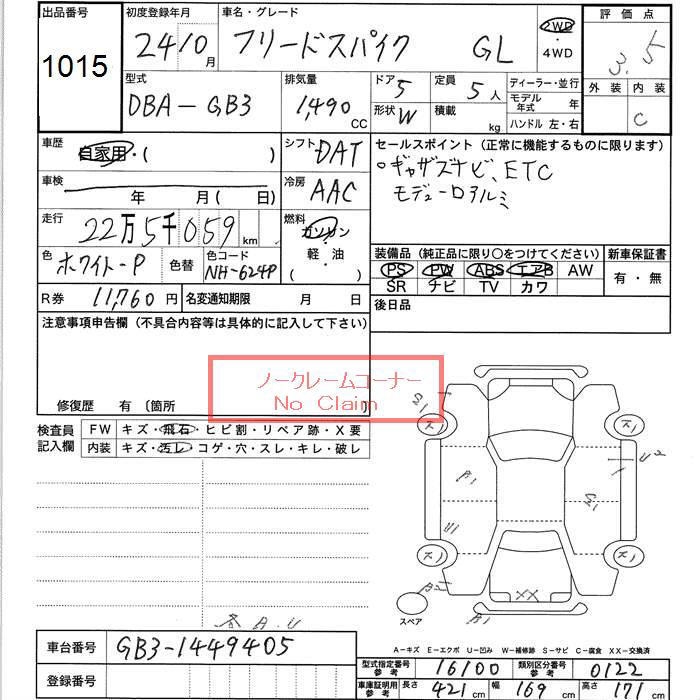 出品番号 初度登録年月 車名・グレード 2WD・4WD 評価点
1015 24/10月 フリードスパイク GL 3.5
外装 内装
C
型式 排気量 ドア 定員 ディーラー・並行
DBA-GB3 1,490 CC 5 5人 モデル年式 年
形状 W 積載 kg ハンドル 左・右
車歴 自家用・( ) シフト DAT
セールスポイント(正常に機能するものに限ります)
○ギャザズナビ、ETC
モデューロアルミ
車検 年 月(日) 冷房 AAC
走行 22万5千059km 燃料 ガソリン・軽油( )
色 ホワイト-P 色替 色コード NH-624P
装備品(純正品に限り○をつけてください) 新車保証書
PS PW ABS エアB AW 有・無
SR ナビ TV カワ
R券 11,760円 名変通知期限 月 日 後日品
注意事項申告欄(不具合内容等は具体的に記入して下さい)
ノークレームコーナー
No Claim
修復歴 有〔箇所
検査員記入欄 FW キズ・飛石・ヒビ割・リペア跡・X要
内装 キズ・汚レ・コゲ・穴・スレ・キレ・破レ
S1
X1
X1
U2
B1
S1
U1
X1
X1
B2
XX
スペア
B1
各 B.U
A-キズ E-エクボ U-凹み W-補修跡 S-サビ C-腐食 XX-交換済
車台番号 GB3-1449405
登録番号
型式指定番号参考 16100 類別区分番号参考 0122
車庫証明用参考 長さ 421cm 幅 169cm 高さ 171cm